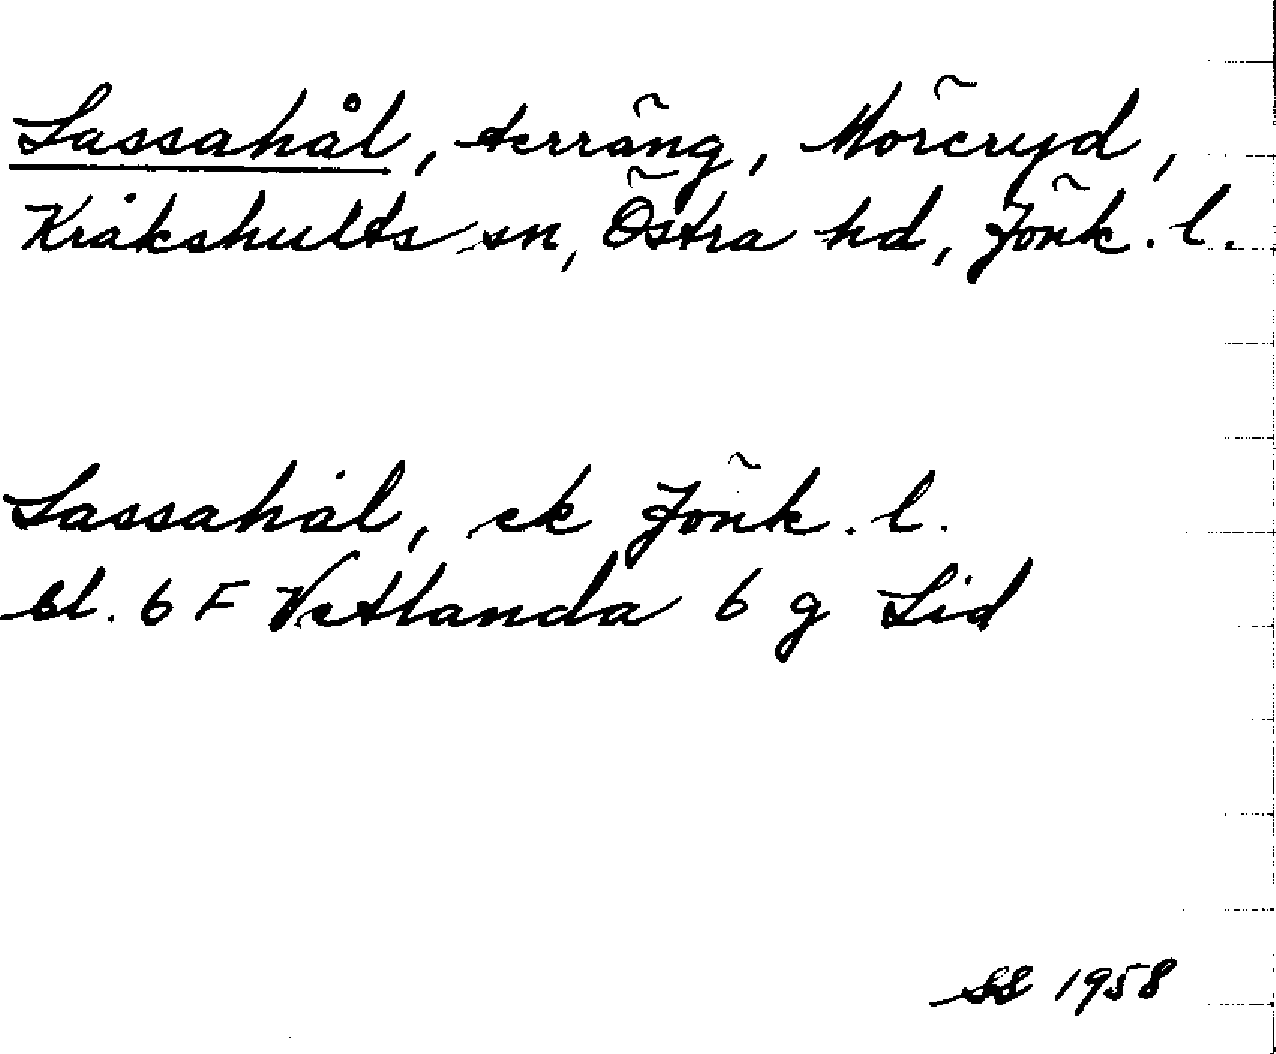 Lassahål, terräng, Möreryd,
Kråkshults sn, Östra hd, Jönk. l.
Lassahål, ek Jönk. l.
bl. 6 F Vetlanda 6 g Lid
SS 1958